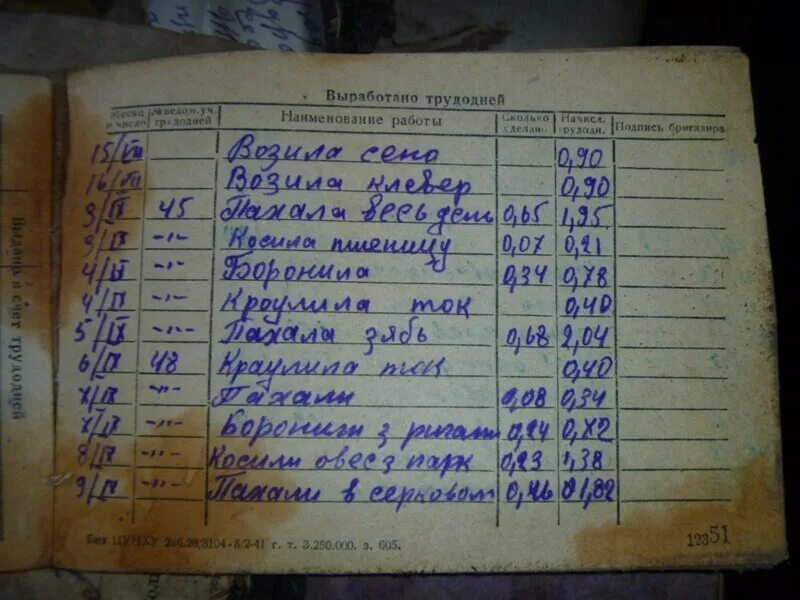 Выработано трудодней
Месяц и число № ведом. уч. трудодней Наименование работы Сколько сделано Начисл. трудодн. Подпись бригадира
15/VIII Возила сено 0,90
16/VIII Возила клевер 0,90
3/IX 45 Пахала весь день 0,65 1,95
3/IX -"- Косила пшеницу 0,07 0,21
4/IX -"- Боронила 0,34 0,78
4/IX -"- Кроулила ток 0,40
5/IX -"- Пахала зябь 0,68 2,04
6/IX 48 Краулила ток 0,40
7/IX -"- Пахали 0,08 0,34
7/IX -"- Боронили з 0,24 0,72
8/IX -"- Косили овес з парк 0,23 1,38
9/IX -"- Пахали в серковом 0,46 1,82
Выдано в счет трудодней
Биз ЦУНХУ 206.20/3104-8/2-41 г. т. 3.250.000. з. 605.
12351